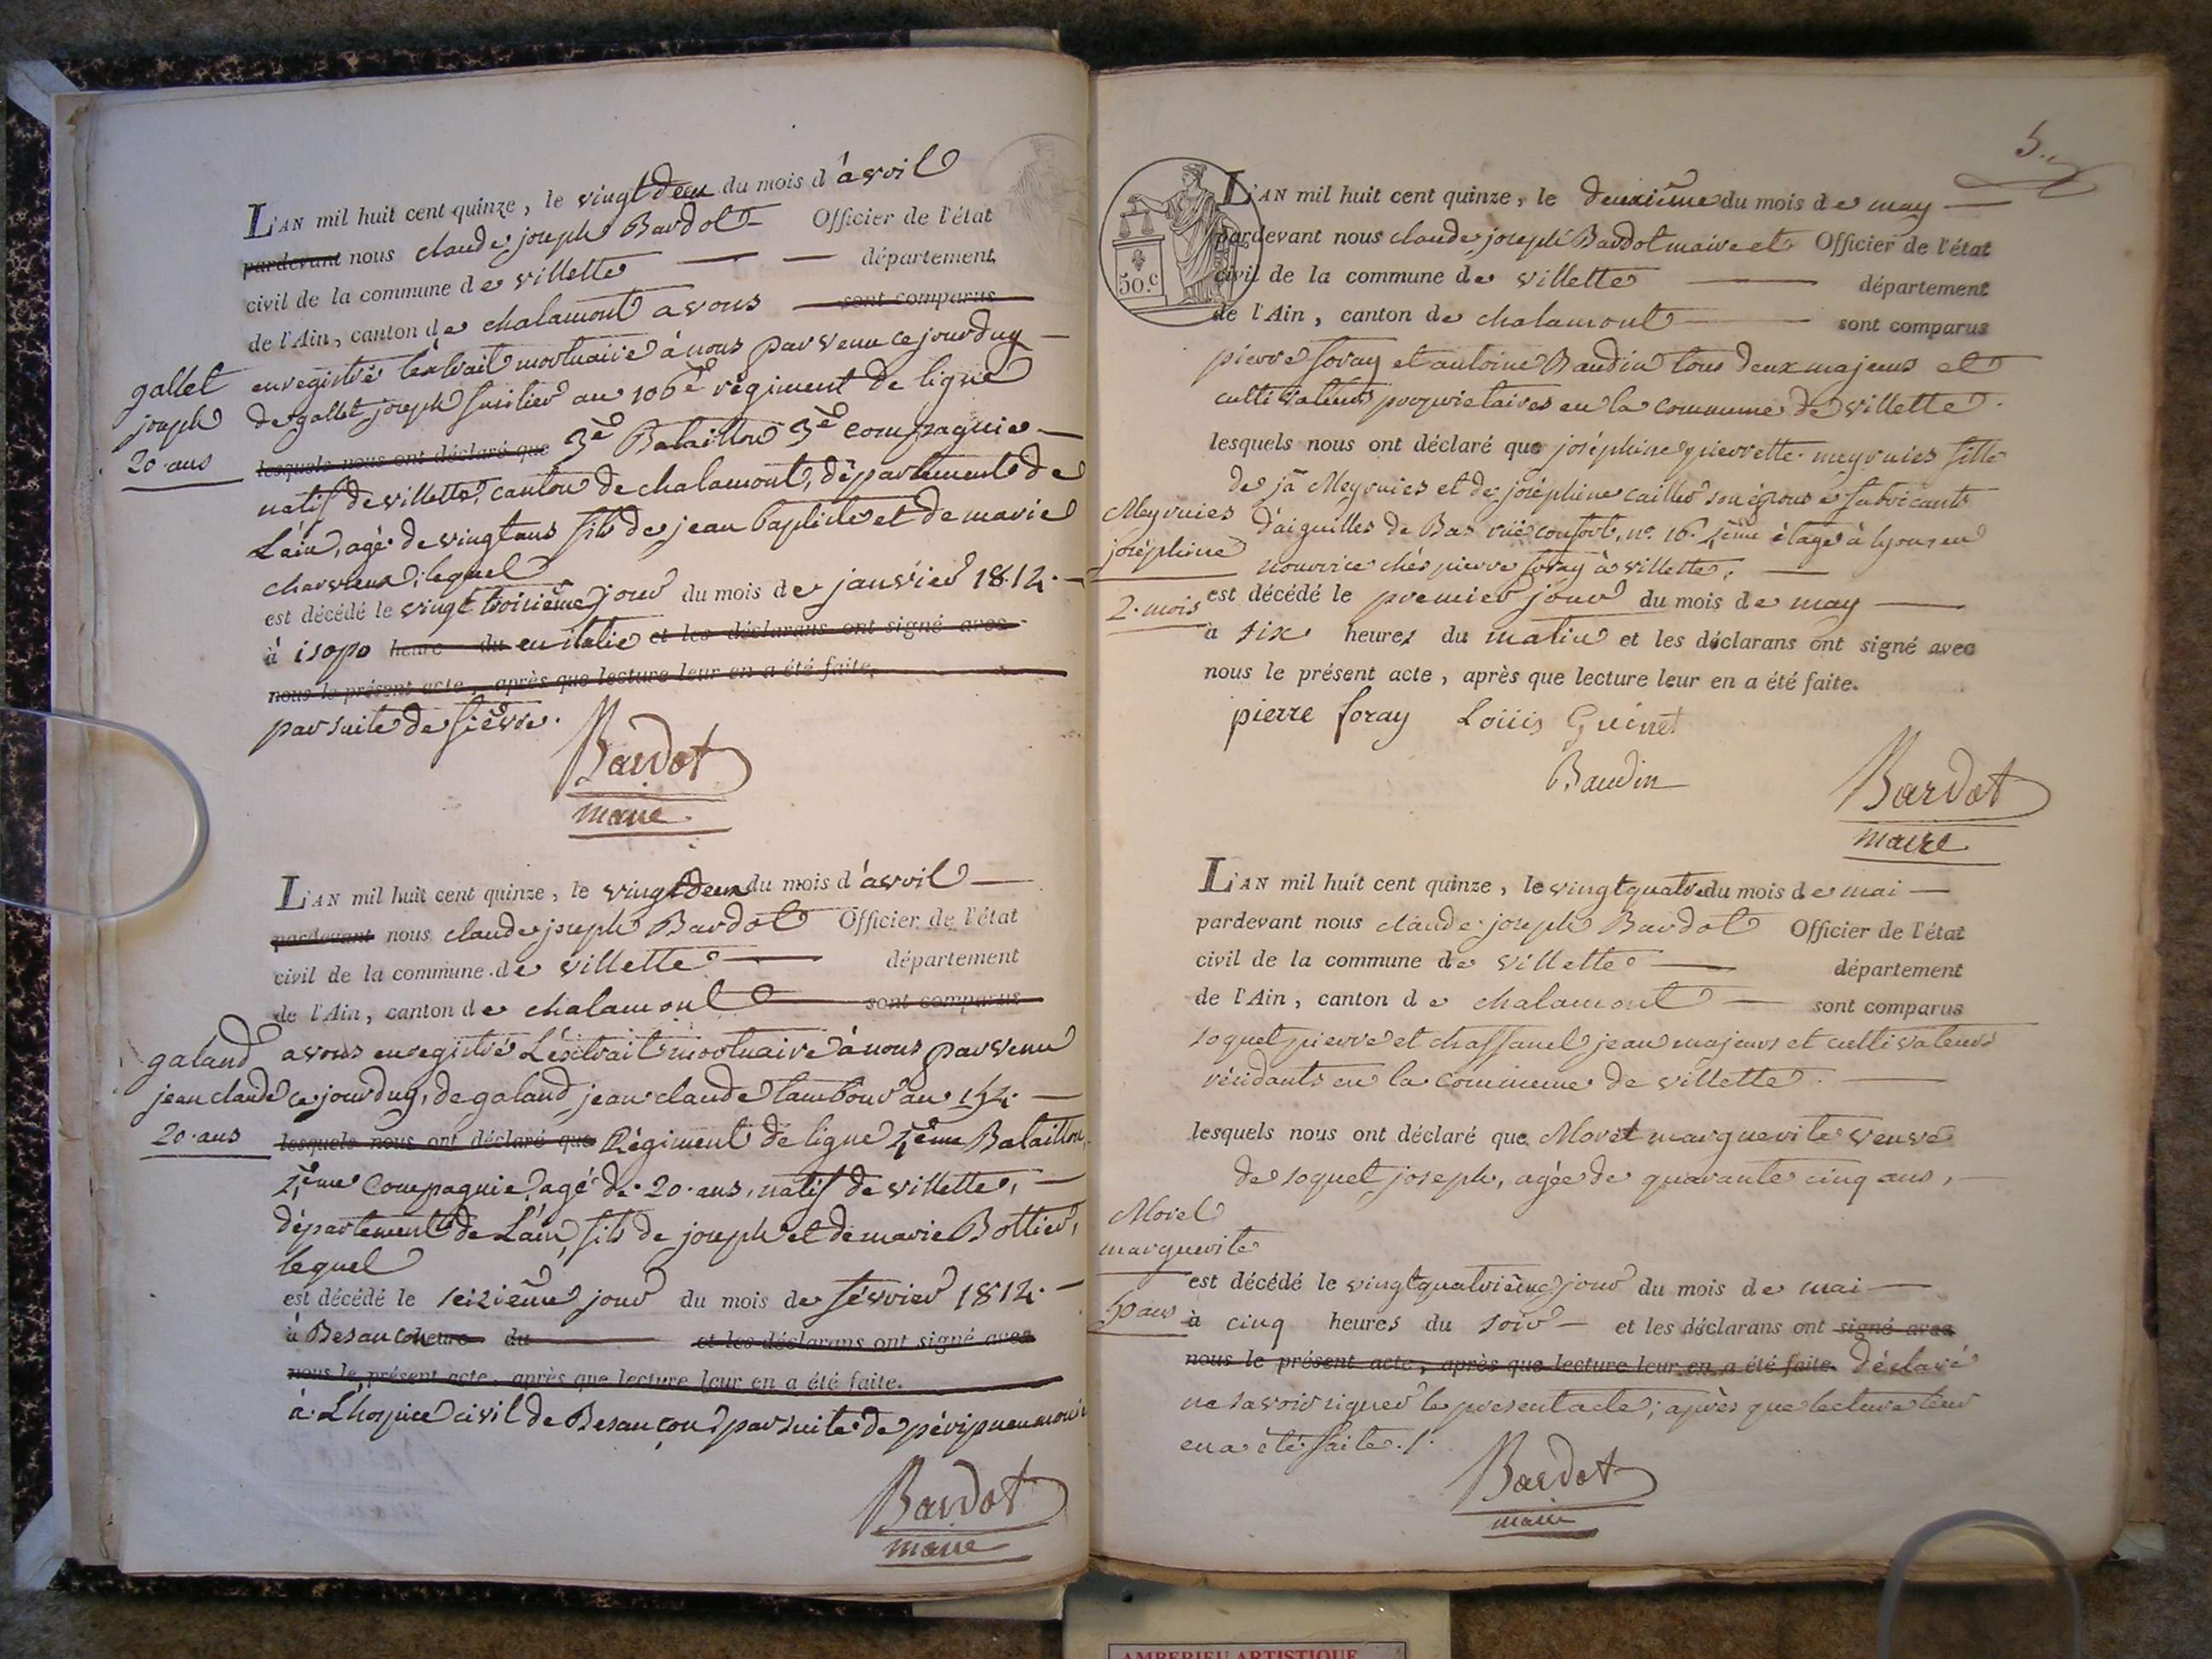 L'AN mil huit cent quinze, le vingt deux du mois d'avril
pardevant nous claude joseph Bardot Officier de l'état
civil de la commune de villette département
de l'Ain, canton de chalamont avons sont comparus
enregistré l'extrait mortuaire à nous parvenu ce jourduy
de gallet joseph fusilier au 106e régiment de ligne
gallet
joseph
20 ans
lesquels nous ont déclaré que 3e Bataillon 3e compagnie
natif de villette, canton de chalamont, département de
L'ain, agé de vingt ans fils de jean baptiste et de marie
charvieux, lequel
est décédé le vingt troisième jour du mois de janvier 1814.
à isopo heure du en italie et les déclarans ont signé avec
nous le présent acte, après que lecture leur en a été faite.
par suite de fièvre.
Bardot
maire
L'AN mil huit cent quinze, le vingt deux du mois d'avril
pardevant nous claude joseph Bardot Officier de l'état
civil de la commune de villette département
de l'Ain, canton de chalamont sont comparus
avons enregistré L'extrait mortuaire à nous parvenu
ce jourduy, de galand jean claude tambour au 154.
galand
jean claude
20 ans
lesquels nous ont déclaré que Régiment de ligne 4ème Bataillon,
4ème Compagnie, agé de 20 ans, natif de villette,
département de L'ain, fils de joseph et de marie Bottier,
lequel
est décédé le seizième jour du mois de février 1814.
à Besancon heure du et les déclarans ont signé avec
nous le présent acte, après que lecture leur en a été faite.
à L'hospice civil de Besançon par suite de péripneumonie
Bardot
maire
5.
50.c
L'AN mil huit cent quinze, le deuxième du mois de may
pardevant nous claude joseph Bardot maire et Officier de l'état
civil de la commune de villette département
de l'Ain, canton de chalamont sont comparus
pierre foray et antoine Baudin tous deux majeurs et
cultivateurs proprietaires en la commune de villette.
lesquels nous ont déclaré que joséphine pierrette meyrnies fille
de jn Meyrnies et de joséphine cailler son épouse fabricants
d'aiguilles de Bas rüe confort, no. 16. 4ème étage à lyon en
nourrice chés pierre foray à villette.
Meyrnies
joséphine
2. mois
est décédé le premier jour du mois de may
à six heures du matin et les déclarans ont signé avec
nous le présent acte, après que lecture leur en a été faite.
pierre foray Loüis Guinet
Baudin
Bardot
maire
L'AN mil huit cent quinze, le vingt quatre du mois de mai
pardevant nous claude joseph Bardot Officier de l'état
civil de la commune de villette département
de l'Ain, canton de chalamont sont comparus
soquet pierre et chaffanel jean majeurs et cultivateurs
résidants en la commune de villette.
lesquels nous ont déclaré que Morel marguerite veuve
de soquet joseph, agée de quarante cinq ans,
Morel
marguerite
ans
est décédé le vingt quatrième jour du mois de mai
à cinq heures du soir et les déclarans ont signé avec
nous le présent acte, après que lecture leur en a été faite. déclaré
ne savoir signer le present acte, après que lecture leur
en a été faite.
Bardot
maire
AMBERIEU ARTISTIQUE